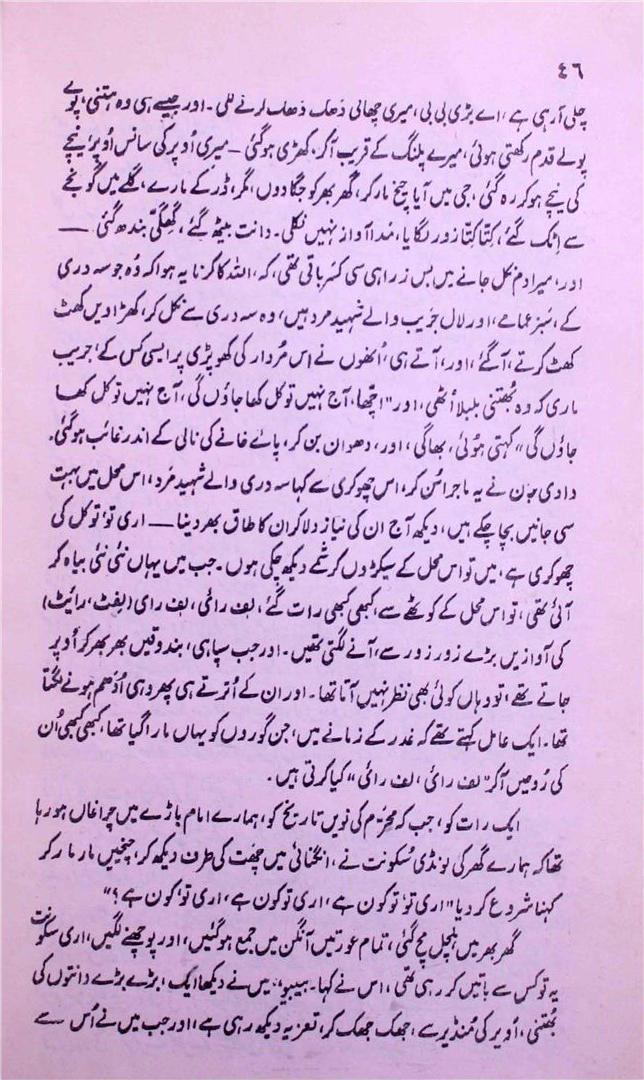 ٤٦
چلی آرہی ہے، اے بڑی بی بی، میری چھاتی دَھک دَھک کرنے لگی۔ اور جیسے ہی وہ بھتنی، پولے
پولے قدم رکھتی ہوئی، میرے پلنگ کے قریب آکر، کھڑی ہوگئی — میری اُوپر کی سانس اُوپر، نیچے
کی نیچے ہو کر رہ گئی، جی میں آیا چیخ مار کر، گھر بھر کو جگا دوں، مگر، ڈر کے مارے، گلے میں گونجے
سے اٹک گئے، کِتّا کِتّا زور لگایا، مُدا آواز نہیں نکلی۔ دانت بیٹھ گئے، گھگّی بندھ گئی —
اور، میرا دم نکل جانے میں بس زراہی سی کسَر باقی تھی، کہ، اللہ کا کرنا یہ ہوا کہ وُہ جو سہ دری
کے، سَبز عمامے، اور لال جَریب والے شہید مرد ہیں، وہ سہ دری سے نکل کر، کھڑاویں کھٹ
کھٹ کرتے، آگئے، اور، آتے ہی، اُنھوں نے اِس مُردار کی کھوپڑی پر ایسی کس کے، جریب
ماری کہ وہ بھُتنی بلبلا اُٹھی، اور "اچّھا، آج نہیں تو کل کھا جاؤں گی، آج نہیں تو کل کھا
جاؤں گی" کہتی ہُوئی، بھاگی، اور، دھواں بن کر، پائے خانے کی نالی کے اندر غائب ہوگئی۔
دادی جان نے یہ ماجرا سُن کر، اس چھوکری سے کہا سہ دری والے شہید مَرد، اس محل میں بہت
سی جانیں بچا چکے ہیں، دیکھ آج ان کی نیاز دلا کر ان کا طاق بھر دینا — اری تو تو کل کی
چھوکری ہے، میں تو اس محل کے سیکڑوں کرشمے دیکھ چکی ہوں۔ جب میں یہاں نئی نئی بیاہ کر
آئی تھی، تو اس محل کے کوٹھے سے، کبھی کبھی رات گئے، لف رائی، لف رای (لیفٹ، رائیٹ)
کی آوازیں بڑے زور زور سے، آنے لگتی تھیں۔ اور جب سپاہی، بندوقیں بھر بھر کر اُوپر
جاتے تھے، تو وہاں کوئی بھی نظر نہیں آتا تھا۔ اور ان کے اُترتے ہی پھر وہی اُودَھم ہونے لگتا
تھا۔ ایک عامل کہتے تھے کہ غدر کے زمانے میں، جن گوروں کو یہاں مارا گیا تھا، کبھی کبھی اُن
کی رُوحیں آکر "لف رائی، لف رائی" کیا کرتی ہیں۔
ایک رات کو، جب کہ محرّم کی نویں تاریخ کو، ہمارے امام باڑے میں چراغاں ہو رہا
تھا کہ ہمارے گھر کی لونڈی سکونت نے، انگنائی میں چھت کی طرف دیکھ کر، چیخیں مار مار کر
کہنا شروع کر دیا "اری تو، تو کون ہے، اری تو کون ہے، اری تو، کون ہے؟"
گھر بھر میں ہلچل مچ گئی، تمام عورتیں آنگن میں جمع ہوگئیں، اور پوچھنے لگیں، اری سکونت
یہ تو کس سے باتیں کر رہی تھی، اس نے کہا۔ بیبیو، میں نے دیکھا ایک، بڑے بڑے دانتوں کی
بھُتنی، اُوپر کی مُنڈیر سے، جھک جھک کر، تعزیہ دیکھ رہی ہے، اور جب میں نے اُس سے